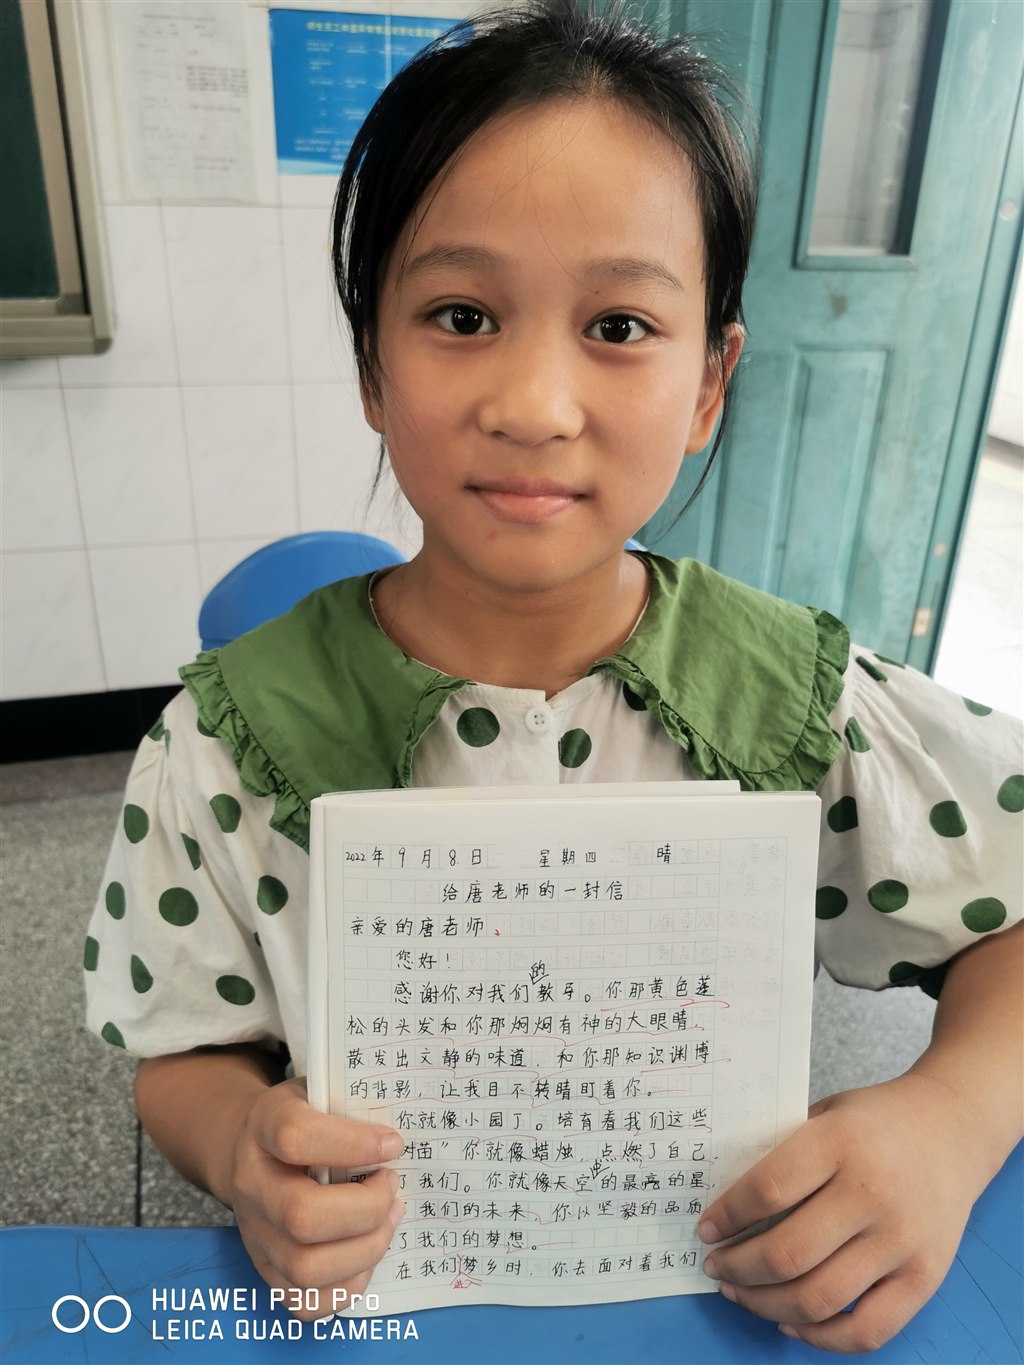 2022年9月8日 星期四 晴
给唐老师的一封信
亲爱的唐老师、
您好！
感谢你对我们的教导。你那黄色蓬
松的头发和你那炯炯有神的大眼睛，
散发出文静的味道，和你那知识渊博
的背影，让我目不转睛盯着你。
你就像小园丁。培育着我们这些
树苗”你就像蜡烛，点燃了自己，
了我们。你就像天空中的最亮的星，
了我们的未来、你以坚毅的品质
了我们的梦想。
在我们进入梦乡时，你去面对着我们
HUAWEI P30 Pro
LEICA QUAD CAMERA